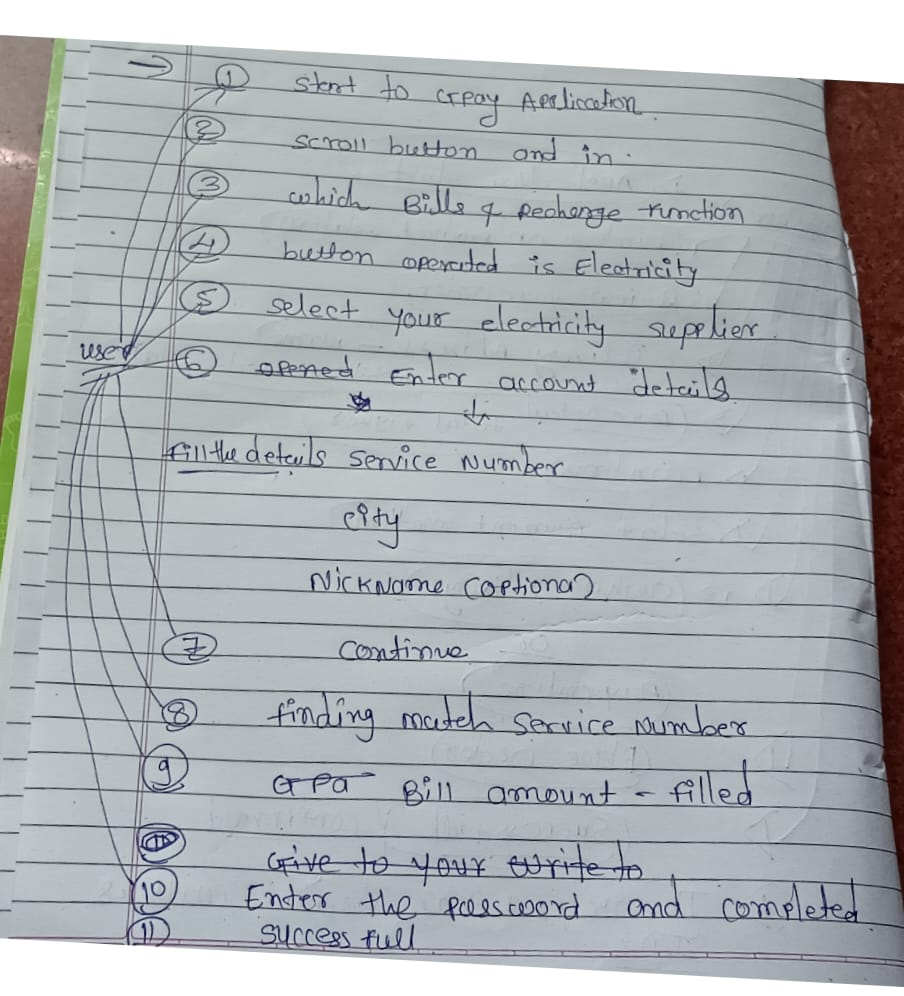 → ① Start to GPay Application
② scroll button and in.
③ which Bills & Recharge function
④ button operated is Electricity
⑤ select your electricity supplier.
user ⑥ opened Enter account details
↓
fill the details Service Number
city
Nickname (optional)
⑦ continue
⑧ finding match service number
⑨ GPa Bill amount - filled
Give to your write to
⑩ Enter the password and completed.
⑪ success full